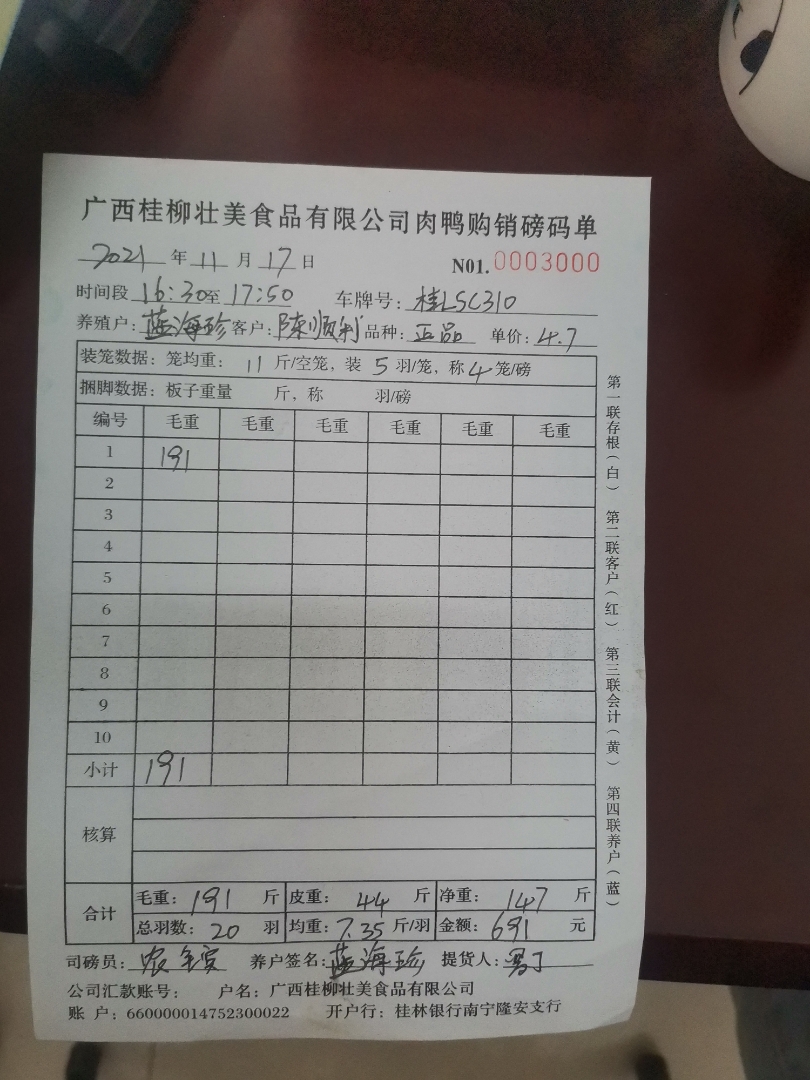 广西桂柳壮美食品有限公司肉鸭购销磅码单
2021 年 11 月 17 日 N01. 0003000
时间段 16:30 至 17:50 车牌号: 桂LSC310
养殖户: 蓝海珍 客户: 陈顺利 品种: 正品 单价: 4.7
装笼数据: 笼均重: 11 斤/空笼, 装 5 羽/笼, 称 4 笼/磅
捆脚数据: 板子重量 斤, 称 羽/磅
编号 毛重 毛重 毛重 毛重 毛重 毛重
1 191
2
3
4
5
6
7
8
9
10
小计 191
核算
合计 毛重: 191 斤 皮重: 44 斤 净重: 147 斤
总羽数: 20 羽 均重: 7.35 斤/羽 金额: 691 元
司磅员: 养户签名: 蓝海珍 提货人:
公司汇款账号: 户名: 广西桂柳壮美食品有限公司
账 户: 660000014752300022 开户行: 桂林银行南宁隆安支行
第一联存根(白) 第二联客户(红) 第三联会计(黄) 第四联养户(蓝)